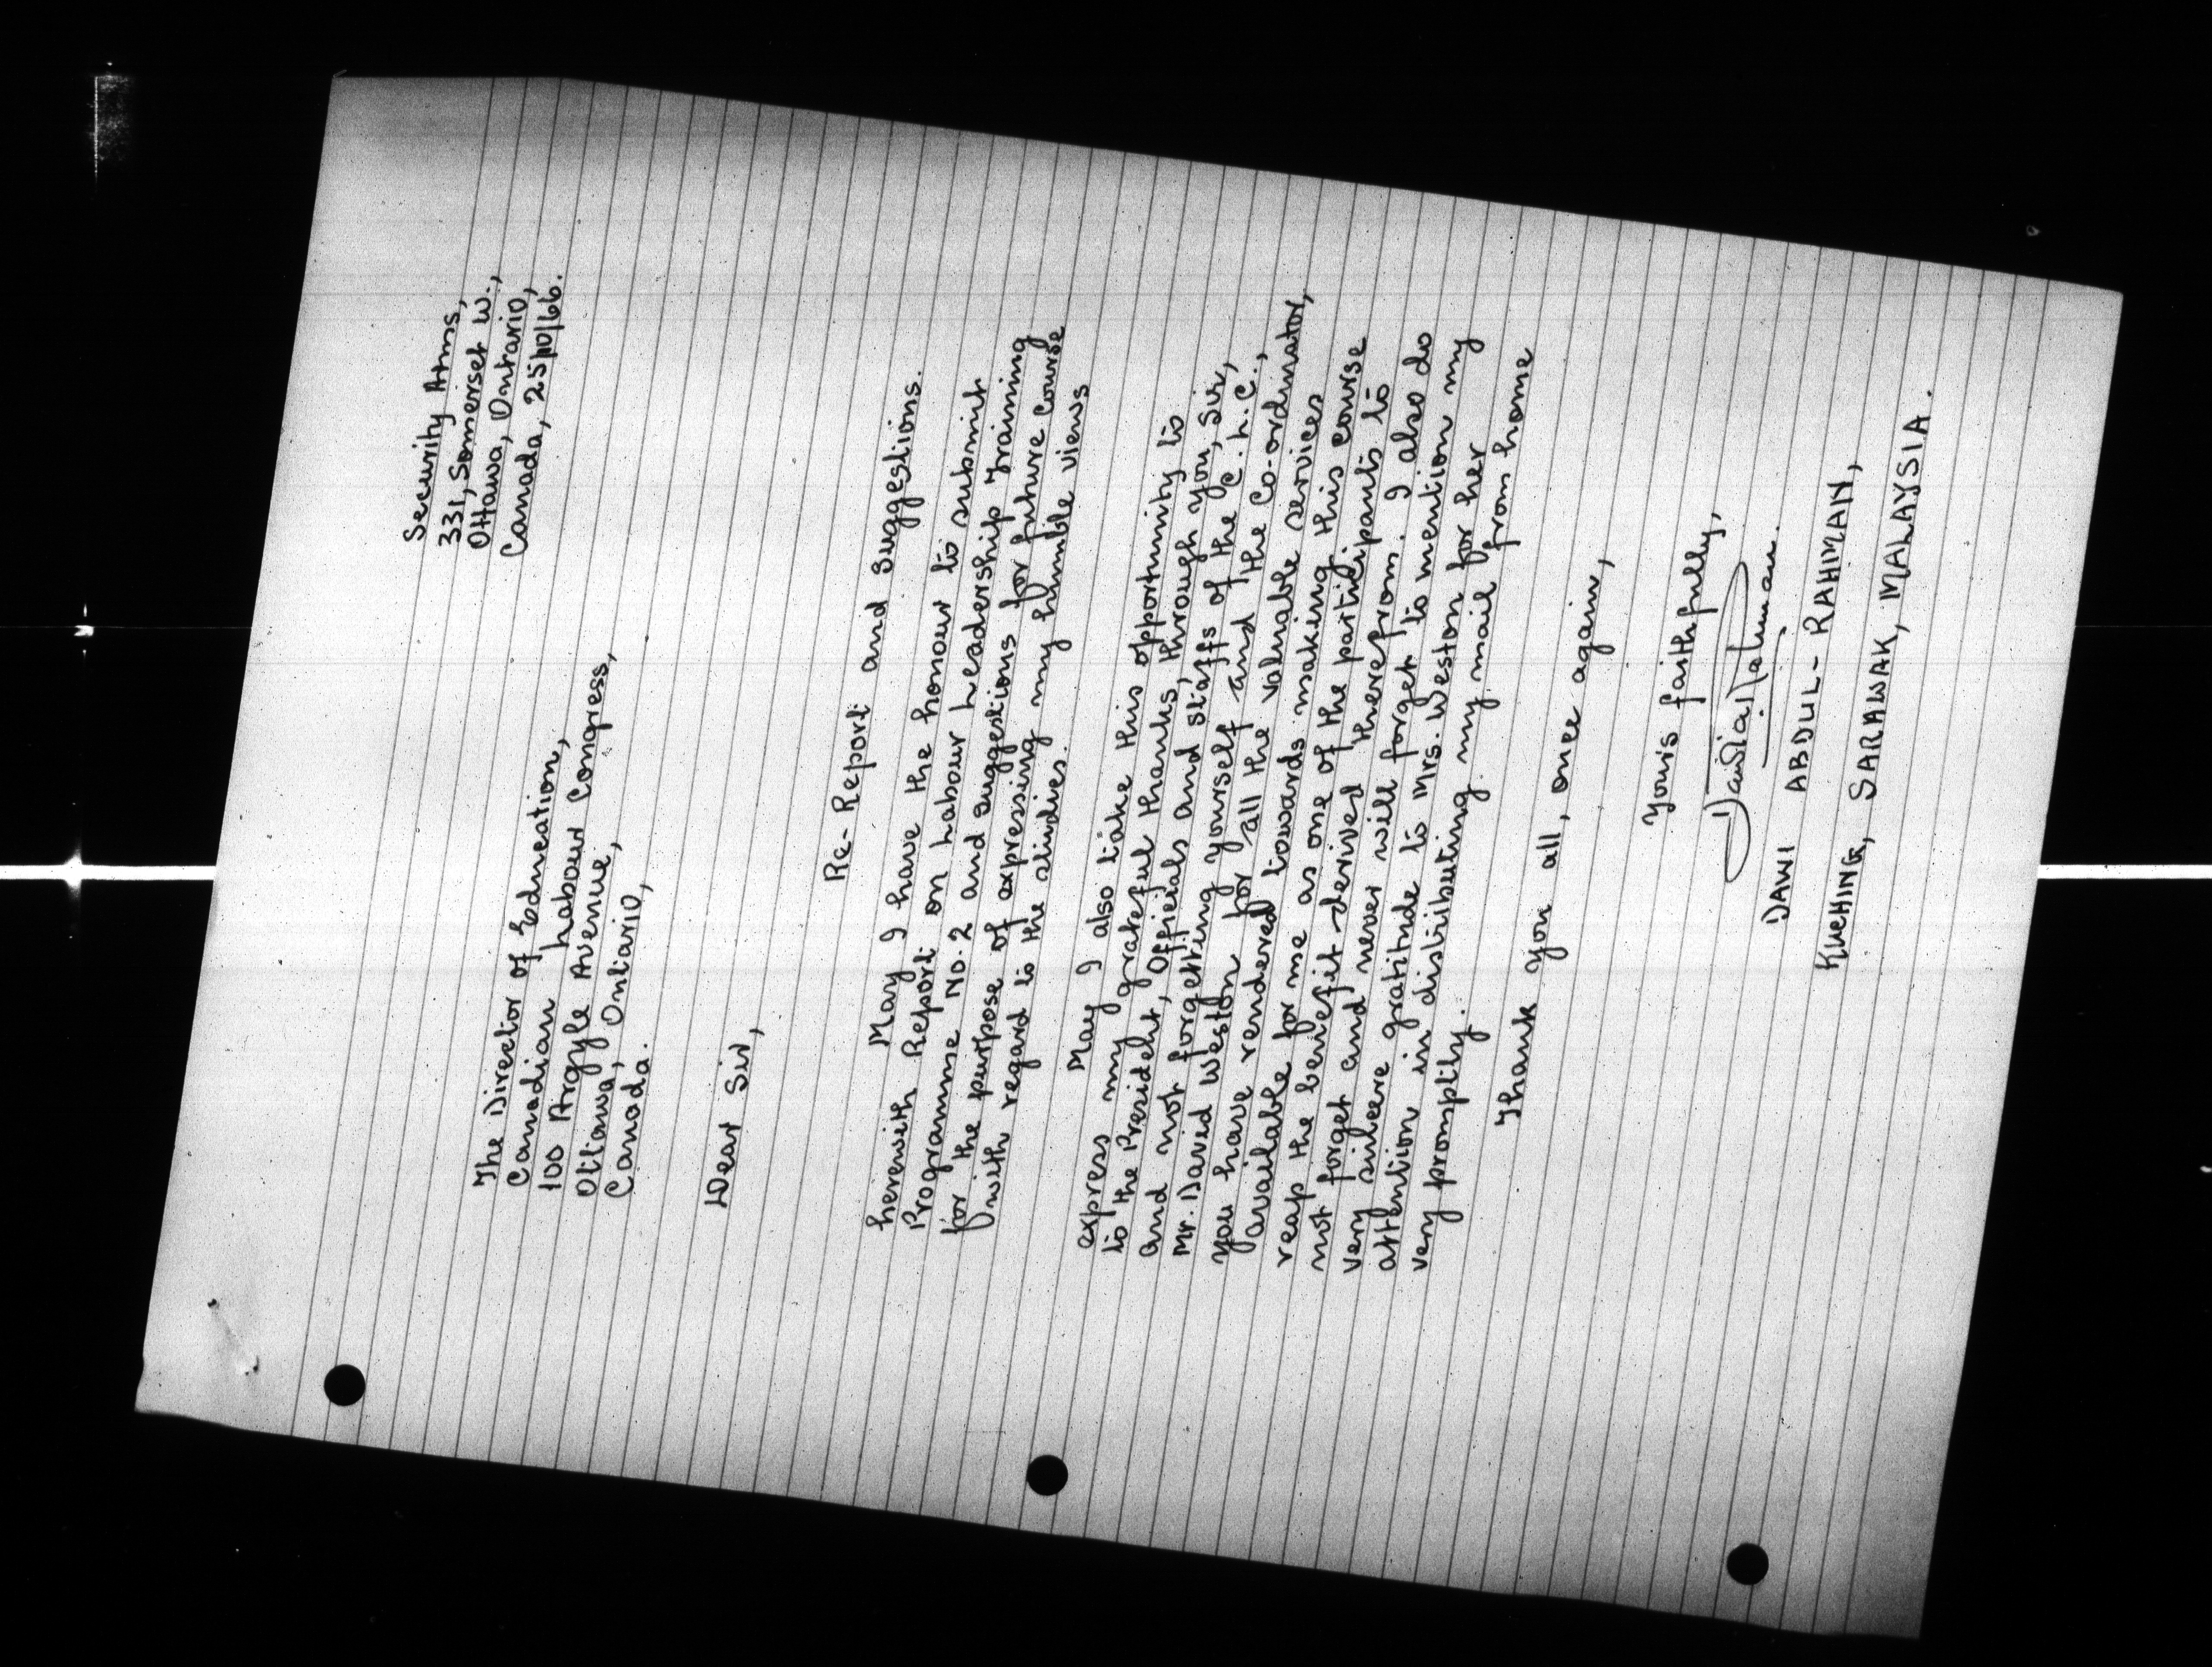 Security Arms,
331, Somerset W.,
Ottawa, Ontario,
Canada, 25/10/66.
The Director of Education,
Canadian Labour Congress,
100 Argyle Avenue,
Ottawa, Ontario,
Canada.
Dear Sir,
Re- Report and Suggestions.
May I have the honour to submit
herewith Report on Labour Leadership Training
Programme No. 2 and suggestions for future course
for the purpose of expressing my humble views
with regard to the studies.
May I also take this opportunity to
express my grateful thanks, through you, Sir,
to the President, Officials and staffs of the C.L.C.,
and not forgetting yourself and the Co-ordinator,
Mr. David Weston for all the valuable services
you have rendered towards making this course
available for me as one of the participants to
reap the benefit derived therefrom. I also do
not forget and never will forget to mention my
very sincere gratitude to Mrs. Weston for her
attention in distributing my mail from home
very promptly.
Thank you all, once again,
Yours faithfully,
DAWI ABDUL-RAHMAN,
KUCHING, SARAWAK, MALAYSIA.